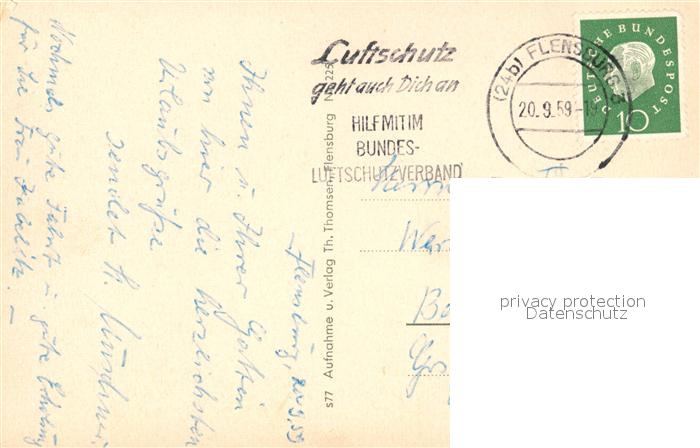 Luftschutz
geht auch Dich an
HILF MIT IM
BUNDES-
LUFTSCHUTZVERBAND
(24b) FLENSBURG 3
20.9.59
DEUTSCHE BUNDESPOST
10
Flensburg, 20.9.59
Ihnen u. Ihrer Gattin
von hier die herzlichsten
Urlaubsgrüße
sendet H.
Nochmals gute Fahrt u. gute Erholung
für die Frau
s77 Aufnahme u. Verlag Th. Thomsen, Flensburg
Herrn
Wer
Bo
privacy protection
Datenschutz